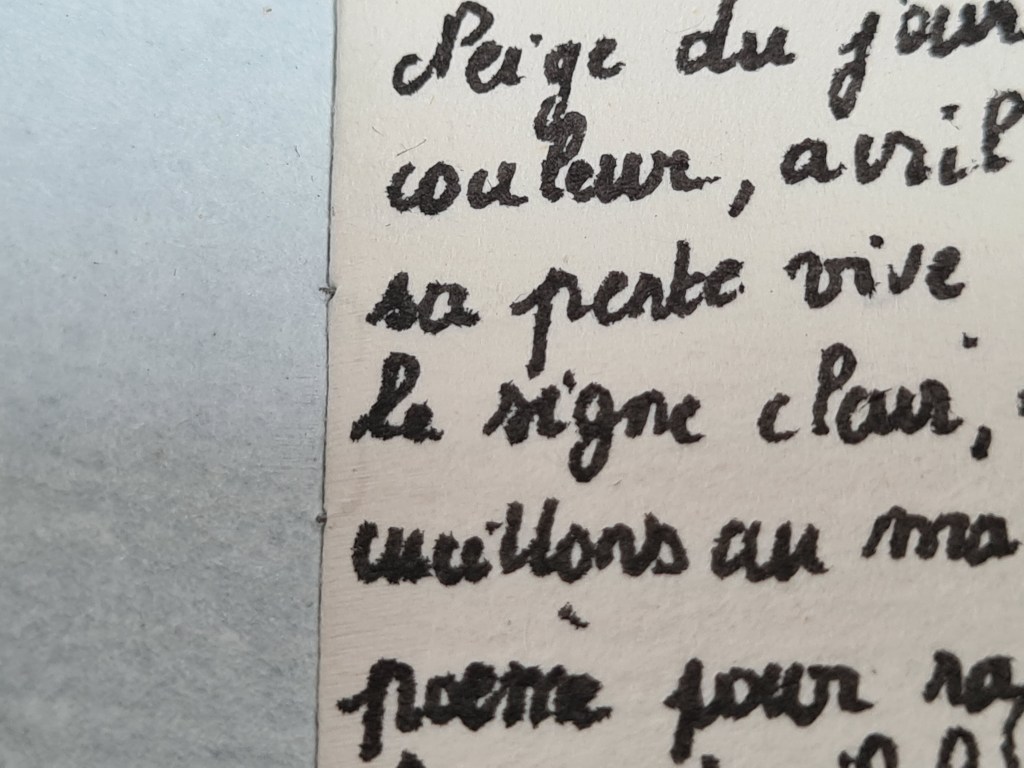 Neige du jour
couleur, avril
sa perte vive
le signe clair,
cueillons au ma
poème pour